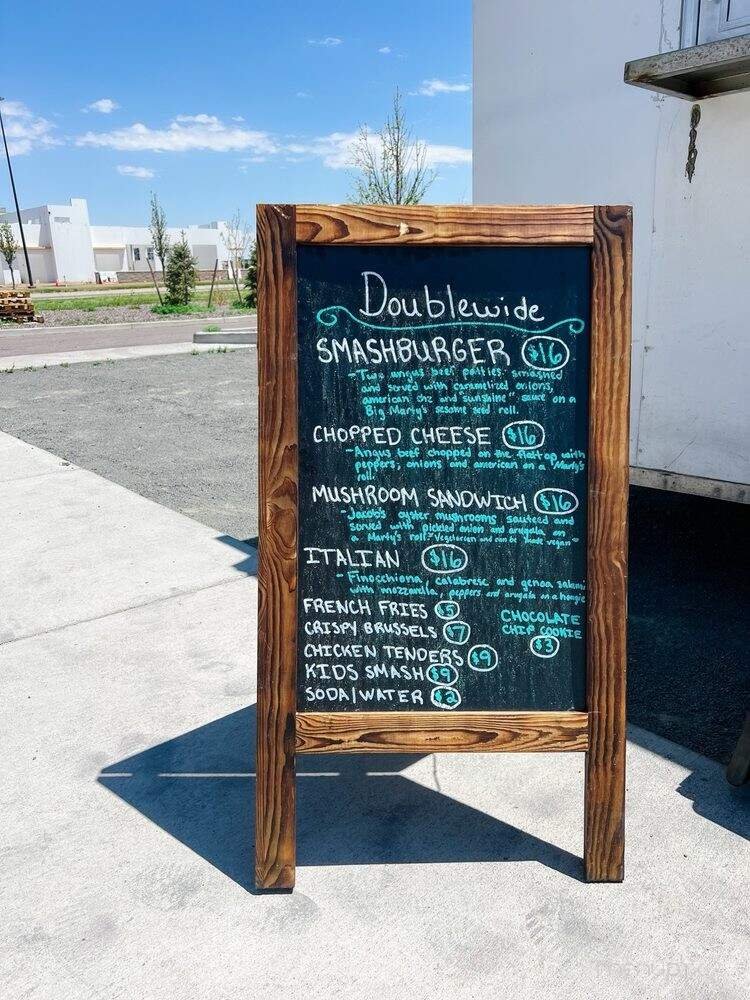 Doublewide
SMASHBURGER $16
-Two angus beef patties, smashed
and served with caramelized onions,
american chz and "sunshine" sauce on a
Big Marty's sesame seed roll.
CHOPPED CHEESE $16
-Angus beef chopped on the flattop with
peppers, onions and american on a Marty's
roll.
MUSHROOM SANDWICH $16
-Jacob's oyster mushrooms sauteed and
served with pickled onion and arugula on
a Marty's roll. *Vegetarian and can be made vegan*
ITALIAN $16
-Finocchiona, calabrese and genoa salami
with mozzarella, peppers and arugula on a hoagie
FRENCH FRIES $5
CRISPY BRUSSELS $7
CHICKEN TENDERS $9
KIDS SMASH $9
SODA/WATER $2
CHOCOLATE
CHIP COOKIE
$3